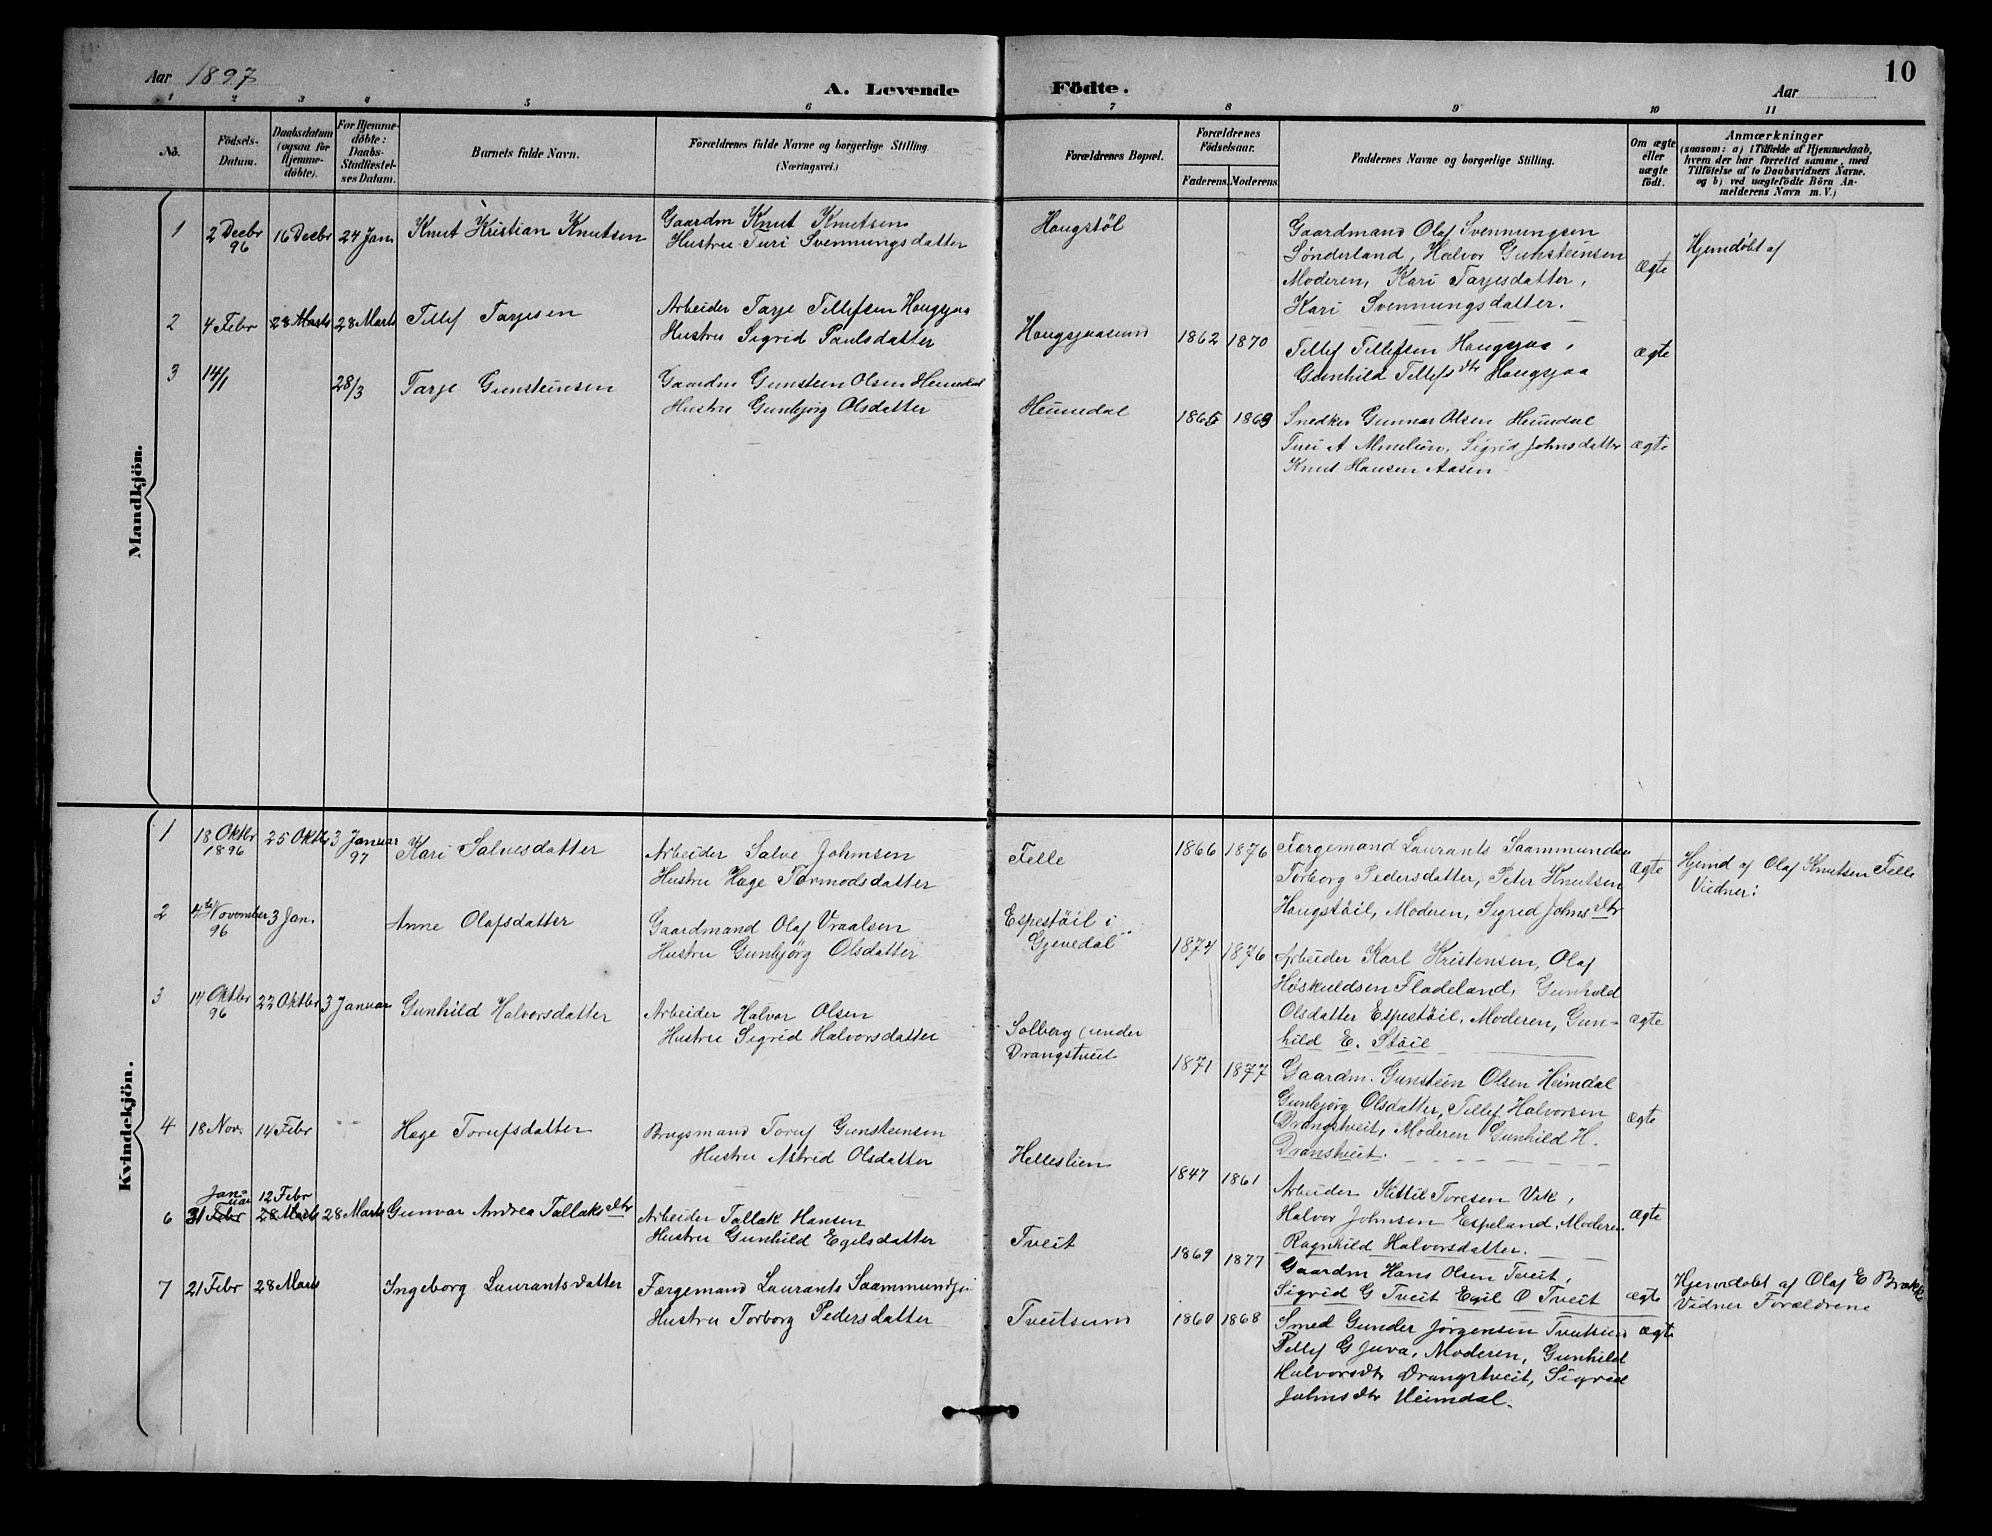 Aar 1897
A. Levende Födte.
Aar
10
1 2 3 4 5 6 7 8 9 10 11
No.
Födsels-
Datum.
Daabsdatum
(ogsaa for
Hjemme-
döbte).
For Hjemme-
döbte:
Daabs-
Stadfestel-
ses Datum.
Barnets fulde Navn.
Forældrenes fulde Navne og borgerlige Stilling.
(Næringsvei.)
Forældrenes Bopæl.
Forældrenes
Födselsaar.
Faderens. Moderens.
Faddernes Navne og borgerlige Stilling.
Om ægte
eller
uægte
födt.
Anmærkninger
(saasom: a) i Tilfælde af Hjemmedaab,
hvem der har forrettet samme, med
Tilföielse af to Daabsvidners Navne.
og b) ved uægtefödte Börn An-
melderens Navn m. V.)
Mandkjön.
1
2 Decbr
96
16 Decbr
24 Jan
Knut Kristian Knutsen
Gaardm Knut Knutsen
Hustru Turi Svennungsdatter
Haugstöl
Gaardmand Olaf Svennungsen
Sønderland, Halvor Gunsteinsen
Moderen, Kari Tarjesdatter,
Kari Svennungsdatter.
Ægte
Hjemdöbt af
2
4 Febr
28 Marts
28 Marts
Tellef Tarjesen
Arbeider Tarje Tellefsen Haugsjaa
Hustru Sigrid Paulsdatter
Haugsjaasund
1862
1870
Tellef Tellefsen Haugsjaa,
Gunhild Tellefsdtr Haugsjaa
ægte
3
14/1
28/3
Tarje Gunsteinsen
Gaardm Gunstein Olsen Heimdal
Hustru Gunbjörg Olsdatter
Heimdal
1865
1869
Snedker Gunnar Olsen Heimdal
Turi A Sigrid Johnsdatter
Knut Hansen Aasen
ægte
Kvindekjön.
1
18 Oktbr
1896
25 Oktbr
3 Januar
97
Kari Salvesdatter
Arbeider Salve Johnsen
Hustru Hæge Tormodsdatter
Felle
1866
1876
Færgemand Laurants Saammundsen
Torborg Pedersdatter, Peter Knutsen
Haugstöil, Moderen, Sigrid Johnsdtr
Ægte
Hjemd af Olaf Knutsen Felle
Vidner:
2
4de November
96
3 Jan.
Anne Olafsdatter
Gaardmand Olaf Vraalsen
Hustru Gunbjörg Olsdatter
Espestöil i
Gjevedal
1874
1876
Arbeider Karl Kristensen, Olaf
Höskuldsen Fladeland, Gunhild
Olsdatter Espestöil, Moderen, Gun-
hild E. Stöil
ægte
3
14 Oktbr
96
22 Oktbr
3 Januar
Gunhild Halvorsdatter
Arbeider Halvor Olsen
Hustru Sigrid Halvorsdatter
Solberg (under
Drangstveit
1871
1877
Gaardm. Gunstein Olsen Heimdal
Gunbjörg Olsdatter, Tellef Halvorsen
Drangstveit, Moderen Gunhild H.
Dranstveit.
ægte
4
18 Nov.
14 Febr
Hæge Torufsdatter
Brugsmand Toruf Gunsteinsen
Hustru Astrid Olsdatter
Helleslien
1847
1861
Arbeider Kittil Toresen Vik,
Halvor Johnsen Espeland, Moderen
Ragnhild Halvorsdatter.
ægte
6
Jan-
uar
31 Febr
12 Febr
28 Marts
28 Marts
Gunvar Andrea Tallaksdtr
Arbeider Tallak Hansen
Hustru Gunhild Egelsdatter
Tveit
1869
1877
Gaardm Hans Olsen Tveit,
Sigrid G Tveit Egil O Tveit
ægte
7
21 Febr
28 Marts
Ingeborg Laurantsdatter
Færgemand Laurants Saammundsen
Hustru Torborg Pedersdatter
Tveitsund
1860
1868
Smed Gunder Jörgensen Tveitsund
Tellef G Juva, Moderen, Gunhild
Halvorsdtr Drangstveit, Sigrid
Johnsdtr Heimdal.
ægte
Hjemdöbt af Olaf E Brække
Vidner Forældrene